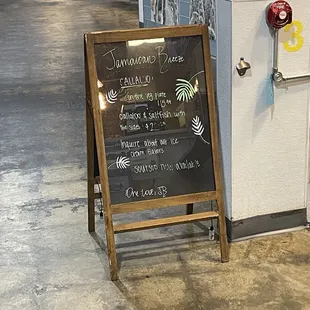 Jamaican Breeze
CALLALOO
plate
$ 15
callaloo & saltfish with
two sides $
Inquire about our ice
cream flavors
available
One Love, JB
3